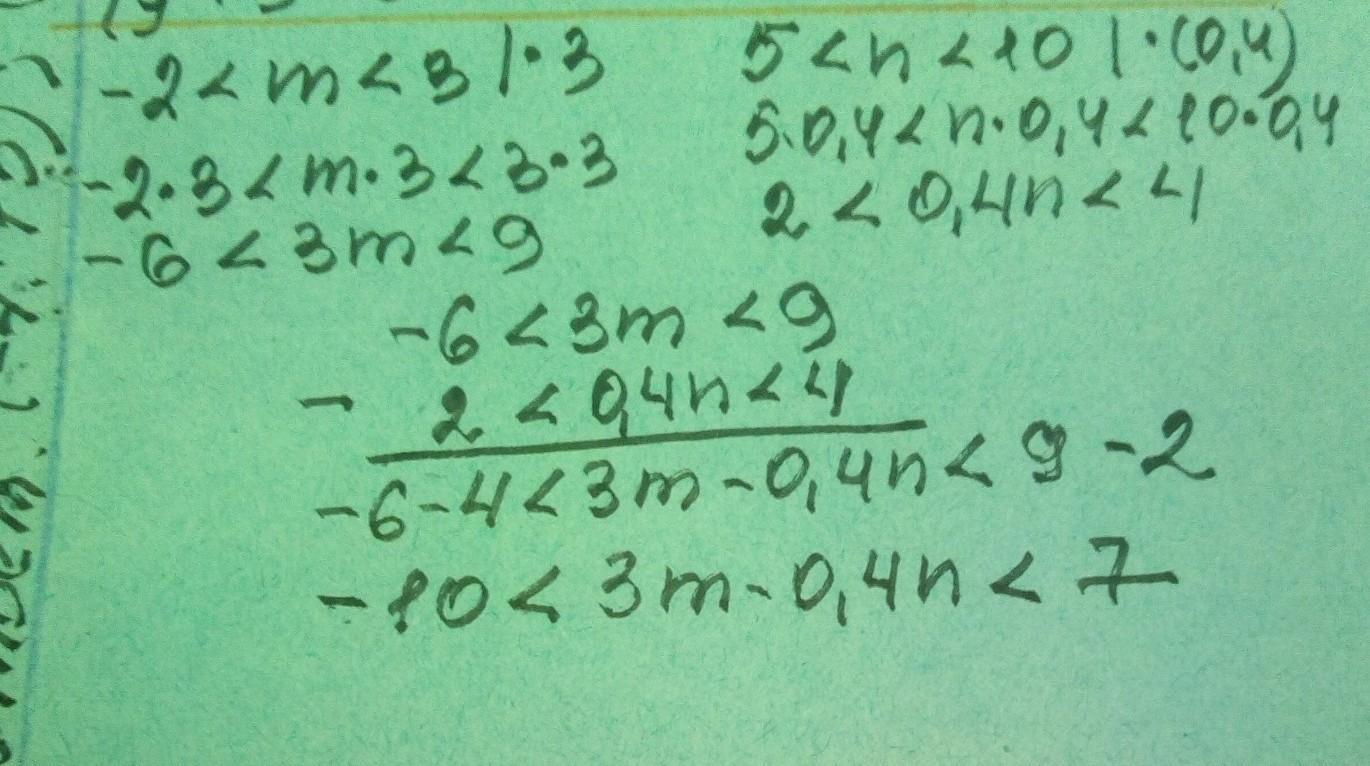 -2 < m < 3 | · 3
-2·3 < m·3 < 3·3
-6 < 3m < 9
5 < n < 10 | · (0,4)
5·0,4 < n·0,4 < 10·0,4
2 < 0,4n < 4
-6 < 3m < 9
- 2 < 0,4n < 4
-6-4 < 3m - 0,4n < 9 - 2
-10 < 3m - 0,4n < 7